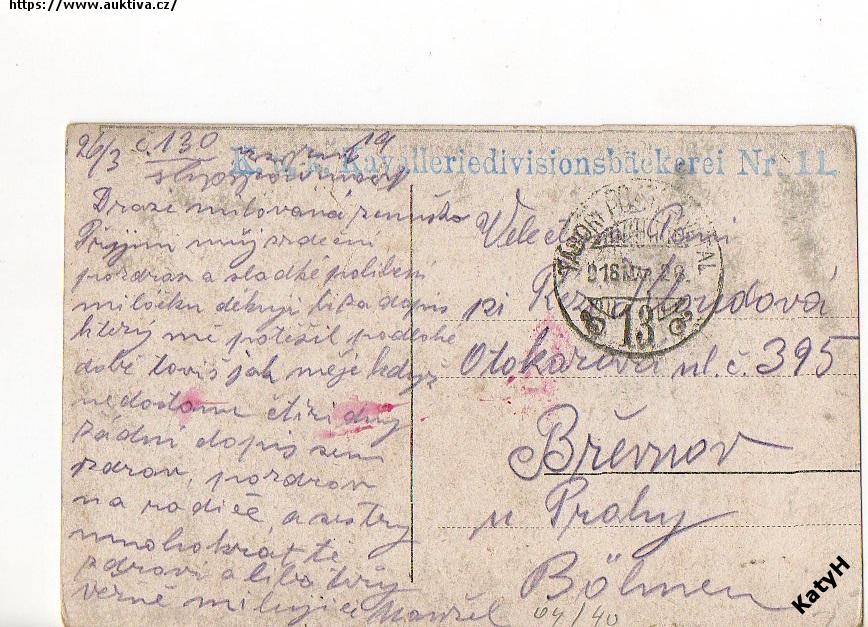 https://www.auktiva.cz/
26/3 č. 130 19
K. u. k. Kavalleriedivisionsbäckerei Nr. 11.
Drazé milovaná ženuško
Přijmi můj srdeční
pozdrav a sladké políbení
miločku děkuji ti za dopis
který mě potěšil po dlouhé
době to víš jak mě je když
nedostanu čtiři dny
žádní dopis sem
zdráv, pozdrav
na rodiče, a sestry
mnohokrát tě
zdraví a líbá tvůj
věrně milující Manžel
Velect. Paní
pí
Otokarova ul. č. 395
Břevnov
u Prahy
Böhmen
TÁBORI POSTAHIVATAL
916 29.
13
64/40
KatyH